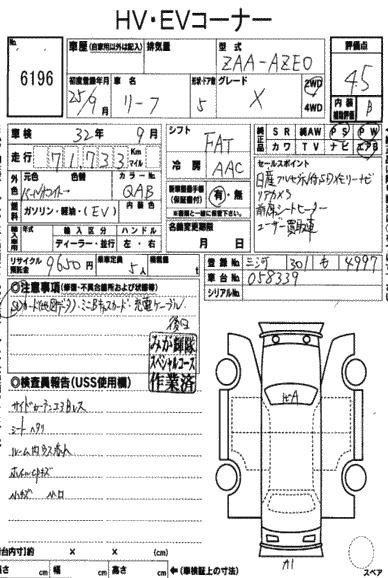 HV・EVコーナー
No. 6196
車歴 (自家用以外は記入) 排気量 型式 ZAA-AZE0 評価点 4.5
初度登録年月 25/9月 車名 リーフ 形状・ドア数 5 グレード X 2WD 4WD 内装 B 補助評価
車検 32年 9月 シフト FAT 純正品 SR 純AW PS PW
走行 71733 Km マイル カワ TV ナビ エアB
冷房 AAC セールスポイント
外色 元色 色替 カラーNo. QAB
パールホワイト
燃料 ガソリン・軽油・(EV) 内装色
新車整備手帳 (保証書付) 有・無
※書類と一緒に保管して下さい
リアカメラ
前席シートヒーター
ユーザー買取車
輸入車用 輸入区分 ハンドル
ディーラー・並行 左・右
名義変更期限 月 日
リサイクル預託金 9650円 乗車定員 5人 積載量 t
登録No. 三河 301 も 4997
車台No. 058339
シリアルNo.
◎注意事項 (修復・不具合箇所および状態等)
SDカード(地図データ)・ミニBキャスカード・充電ケーブル
後日
みが輝隊
スペシャルコース
作業済
◎検査員報告 (USS使用欄)
サイドカーテンエアBレス
シートヘタリ
ホイルキズ
小キズ 小凹
ヒA
A1
荷台内寸]約 × × (cm)
長さ cm 幅 cm 高さ cm ←(車検証上の寸法)
スペア